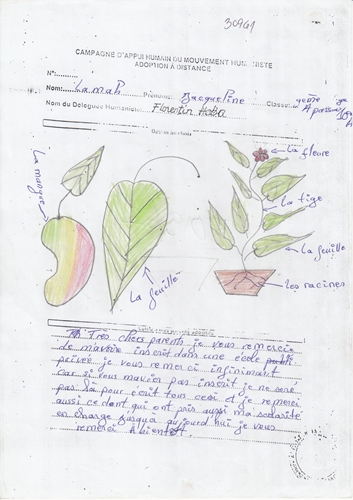 30941
CAMPAGNE D'APPUI HUMAIN DU MOUVEMENT HUMANISTE
ADOPTION A DISTANCE
N°:
Nom: Lamah Prénoms: Jacqueline Classe:
Nom du Délégués Humaniste: Florentin Haba
La mangue
La feuille
La fleure
La tige
La feuille
Les racines
Très chers parents je vous remercie
de mavoire inscrit dans une école
privée je vous remerci infiniment
Car si vous maviez pas inscrit je ne seré
pas là pour écrit tous ceci et je remerci
aussi ce dont qui ont pris aussi ma scolarité
en charge jusqua aujourd'hui je vous
remerci